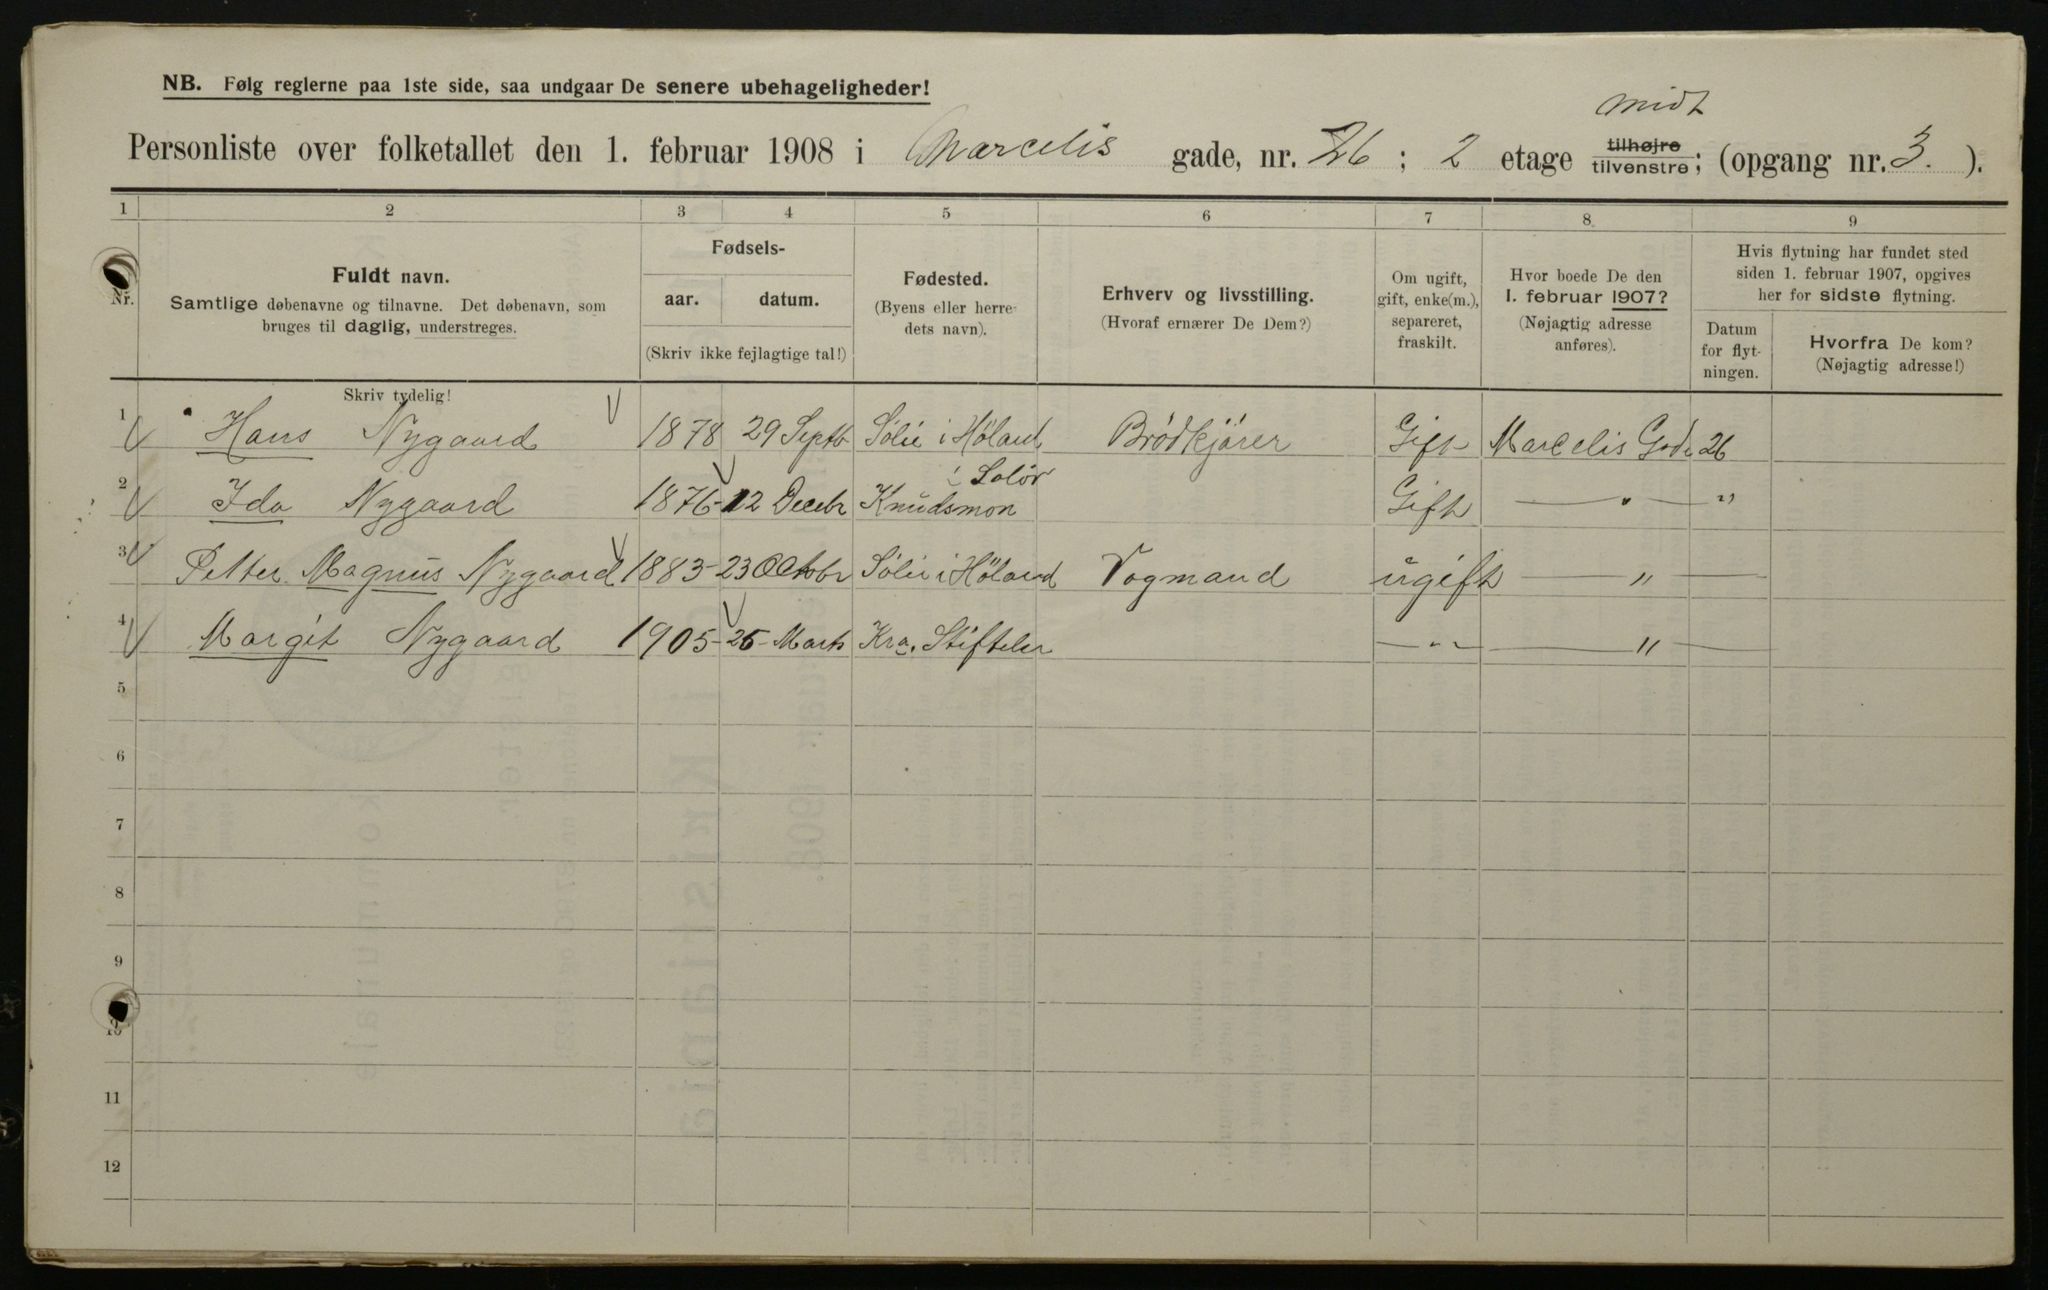 NB. Følg reglerne paa 1ste side, saa undgaar De senere ubehageligheder!
midt
Personliste over folketallet den 1. februar 1908 i Marcelis gade, nr. 26 ; 2 etage tilhøjre tilvenstre; (opgang nr. 3. ).
1 2 3 4 5 6 7 8 9
Nr.
Fuldt navn.
Samtlige døbenavne og tilnavne. Det døbenavn, som
bruges til daglig, understreges.
Skriv tydelig!
Fødsels-
aar. datum.
(Skriv ikke fejlagtige tal!)
Fødested.
(Byens eller herre-
dets navn).
Erhverv og livsstilling.
(Hvoraf ernærer De Dem?)
Om ugift,
gift, enke(m.),
separeret,
fraskilt.
Hvor boede De den
1. februar 1907?
(Nøjagtig adresse
anføres).
Hvis flytning har fundet sted
siden 1. februar 1907, opgives
her for sidste flytning.
Datum
for flyt-
ningen.
Hvorfra De kom?
(Nøjagtig adresse!)
1 Hans Nygaard 1878 29 Septb Sölie i Höland Brödkjörer Gift Marcelis Gade 26
i Solör
2 Ida Nygaard 1876 - 12 Decebr Knudsmon Gift — " — "
3 Petter Magnus Nygaard 1883 - 23 Octobr Sölie i Höland Vogmand ugift — " —
4 Margit Nygaard 1905 - 25 - Marts Kra. — " — — " —
5
6
7
8
9
10
11
12